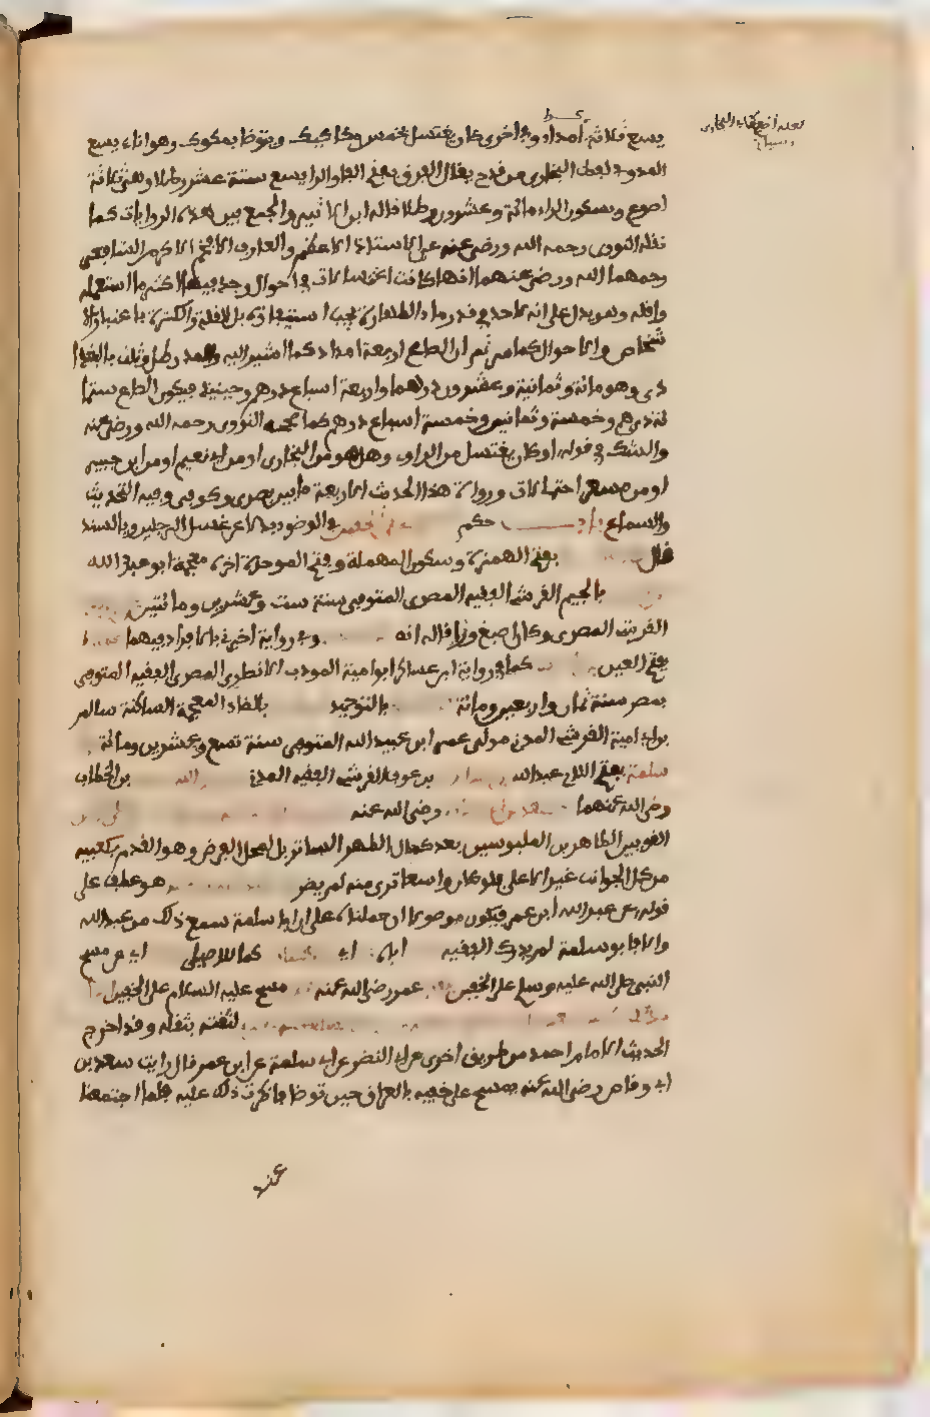 يسع ثلاثة امداد وفي اخرى كان يغتسل بخمس مكاكيك ويتوضا بمكوك وهو اناء يسع
المد وفي لفظ البخاري من قدح يقال الفرق بفتح الفاء والراء يسع ستة عشر رطلا وهي ثلاثة
اصوع وبسكون الراء مائة وعشرون رطلا قاله ابن الاثير والجمع بين هذه الروايات كما
نقله النووي رحمه الله ورضي عنه عن الاستاذ الاعظم والعارف الافخم الاكرم الشافعي
رحمهما الله ورضي عنهما انها كانت اغتسالات في احوال وجد فيها اكثر ما استعمله
واقله وهو يدل على انه لا حد في قدر ماء الطهارة يجب استيفاؤه بل القلة والكثرة باعتبار الا
شخاص والاحوال كما مر ثم ان الصاع اربعة امداد كما اشير اليه والمد رطل وثلث بالبغدا
دي وهو مائة وثمانية وعشرون درهما واربعة اسباع درهم وحينئذ فيكون الصاع ستما
ئة درهم وخمسة وثمانين وخمسة اسباع درهم كما صححه النووي رحمه الله ورضي عنه
والشك في قوله او كان يغتسل من الراوي وهل هو من البخاري او من ابي نعيم او من ابن جبير
او من مسعر احتمالات ورواة هذا الحديث الاربعة ما بين بصري وكوفي وفيه التحديث
والسماع باب حكم على الخفين في الوضوء بدلا عن غسل الرجلين وبالسند
قال بفتح الهمزة وسكون المهملة وفتح الموحدة اخره معجمة ابو عبد الله
بالجيم القرشي الفقيه المصري المتوفى سنة ست وعشرين ومائتين
القرشي المصري وكان اصبغ وراقا له انه وفي رواية اخرى بالافراد فيهما
بفتح العين كما في رواية ابن عساكر ابو امية المودب الانصاري المصري الفقيه المتوفى
بمصر سنة ثمان واربعين ومائة بالتوحيد بالضاد المعجمة الساكنة سالم
بن ابي امية القرشي المدني مولى عمر ابن عبيد الله المتوفى سنة تسع وعشرين ومائة
سلمة بفتح اللام عبد الله بن عوف القرشي الفقيه المدني الله بن الخطاب
رضي الله عنهما سعد ورضي الله عنه
القويين الطاهرين الملبوسين بعد كمال الطهر الساتر بل لمحل الفرض وهو القدم بكعبيه
من كل الجوانب غير الاعلى فلو كان واسعا ترى منه لم يضر هو عطف على
قوله عن عبد الله ابن عمر فيكون موصولا ان حملناه على ان ابا سلمة سمع ذلك من عبد الله
والا فابو سلمة لم يدرك القضية اباه اي كما للاصيلي اي من مسح
النبي صلى الله عليه وسلم على الخفين عمر رضي الله عنه مسح عليه السلام على الخفين
لثقته بنقله وقد اخرج
الحديث الامام احمد من طريق اخرى عن ابي النضر عن ابي سلمة عن ابن عمر قال رايت سعد بن
ابي وقاص رضي الله عنه يمسح على خفيه بالعراق حين توضا فانكرت ذلك عليه فلما اجتمعنا
عند